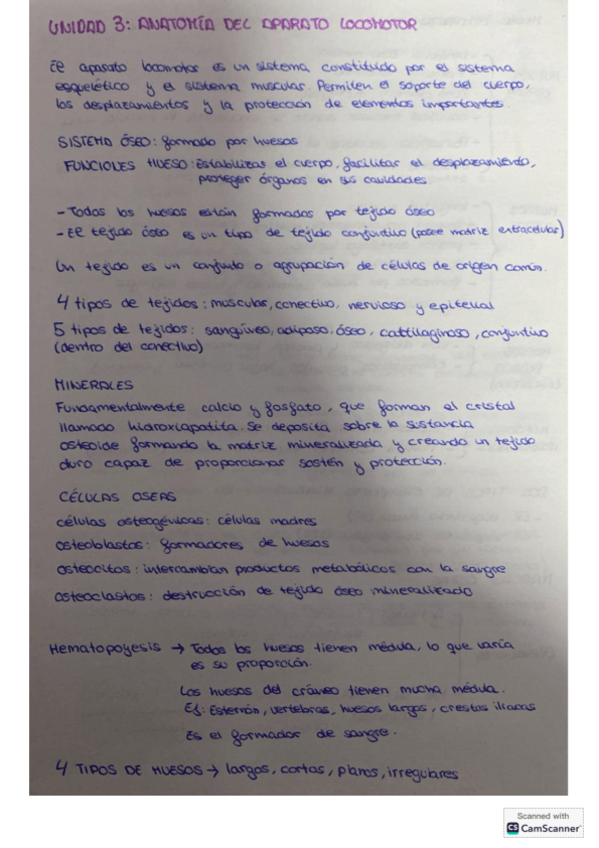 UNIDAD 3: ANATOMÍA DEL APARATO LOCOMOTOR
El aparato locomotor es un sistema constituido por el sistema
esquelético y el sistema muscular. Permiten el soporte del cuerpo,
los desplazamientos y la protección de elementos importantes.
SISTEMA ÓSEO: formado por huesos
FUNCIONES HUESO: Estabilizar el cuerpo, facilitar el desplazamiento,
proteger órganos en sus cavidades
- Todos los huesos están formados por tejido óseo
- El tejido óseo es un tipo de tejido conjuntivo (posee matriz extracelular)
Un tejido es un conjunto o agrupación de células de origen común.
4 tipos de tejidos: muscular, conectivo, nervioso y epitelial
5 tipos de tejidos: sanguíneo, adiposo, óseo, cartilaginoso, conjuntivo
(dentro del conectivo)
MINERALES
Fundamentalmente calcio y fosfato, que forman el cristal
llamado hidroxiapatita. Se deposita sobre la sustancia
osteoide formando la matriz mineralizada y creando un tejido
duro capaz de proporcionar sostén y protección.
CÉLULAS OSEAS
células osteogénicas: células madres
osteoblastos: formadores de huesos
osteocitos: intercambian productos metabólicos con la sangre
osteoclastos: destrucción de tejido óseo mineralizado
Hematopoyesis → Todos los huesos tienen médula, lo que varía
es su proporción.
Los huesos del cráneo tienen mucha médula.
EJ: Esternón, vertebras, huesos largos, crestas iliacas
Es el formador de sangre.
4 TIPOS DE HUESOS → largos, cortos, planos, irregulares
Scanned with
CS CamScanner